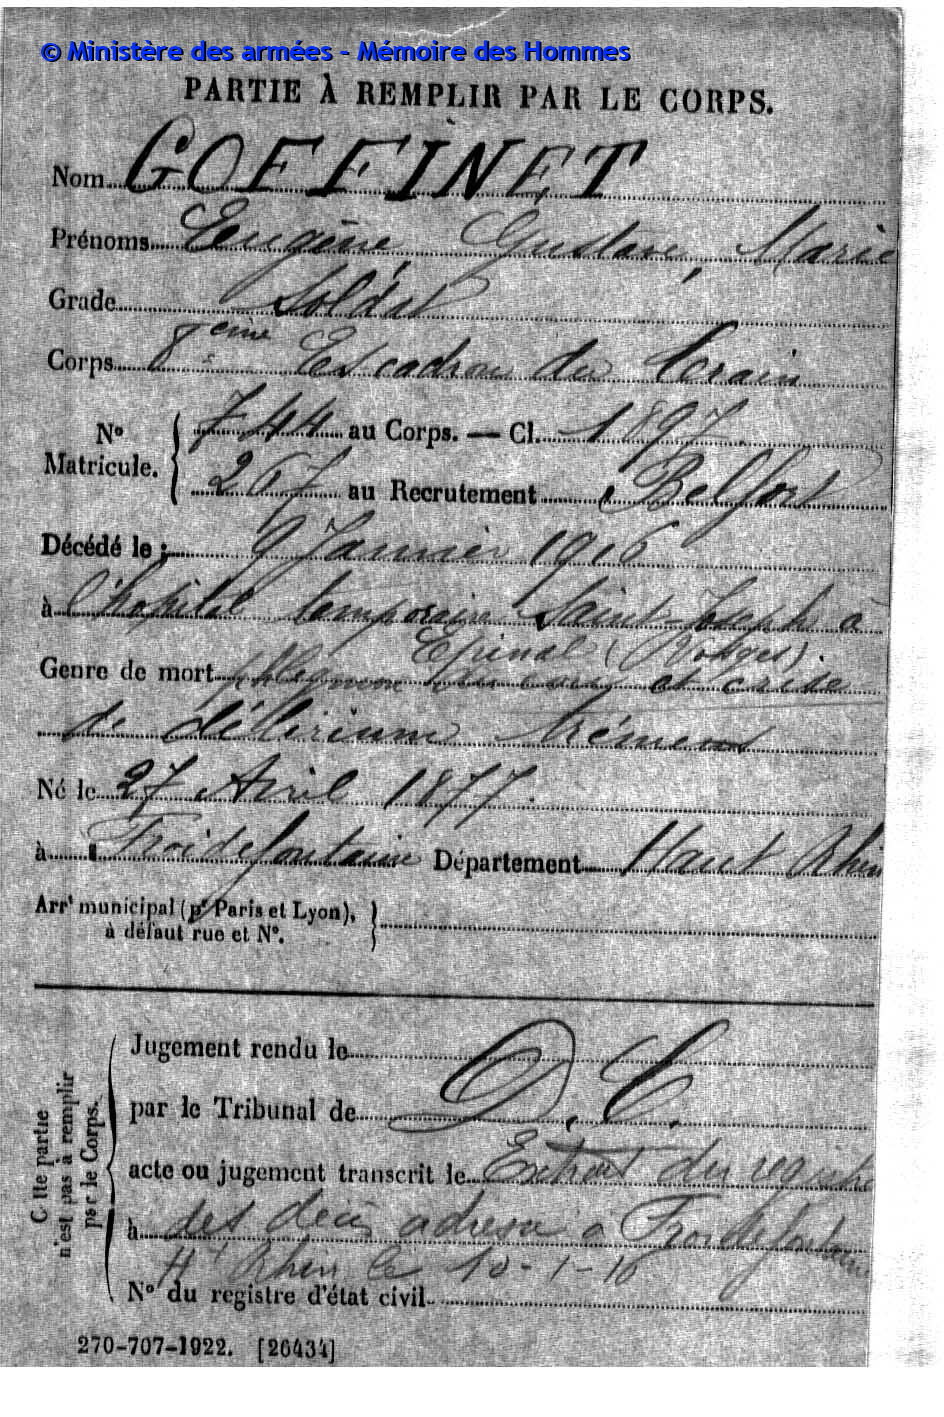 © Ministère des armées - Mémoire des Hommes
PARTIE À REMPLIR PAR LE CORPS.
Nom GOFFINET
Prénoms Eugène Gustave, Marie
Grade Soldat
Corps 8eme Escadron du train
No Matricule. { 744 au Corps. — Cl. 1897
267 au Recrutement Belfort
Décédé le : 9 Janvier 1916
à l'hopital temporaire Saint-Joseph à
Epinal (Vosges).
Genre de mort phlegmon du et crise
de délirium trémens
Né le 27 Avril 1877.
à Froidefontaine Département Haut Rhin
Arrt municipal (pr Paris et Lyon), }
à défaut rue et No.
C tte partie n'est pas à remplir par le Corps. {
Jugement rendu le
par le Tribunal de D. C.
acte ou jugement transcrit le Extrait du registre
à des décès adressé à Froidefontaine
Ht Rhin le 10-1-16
No du registre d'état civil
270-707-1922. [26434]